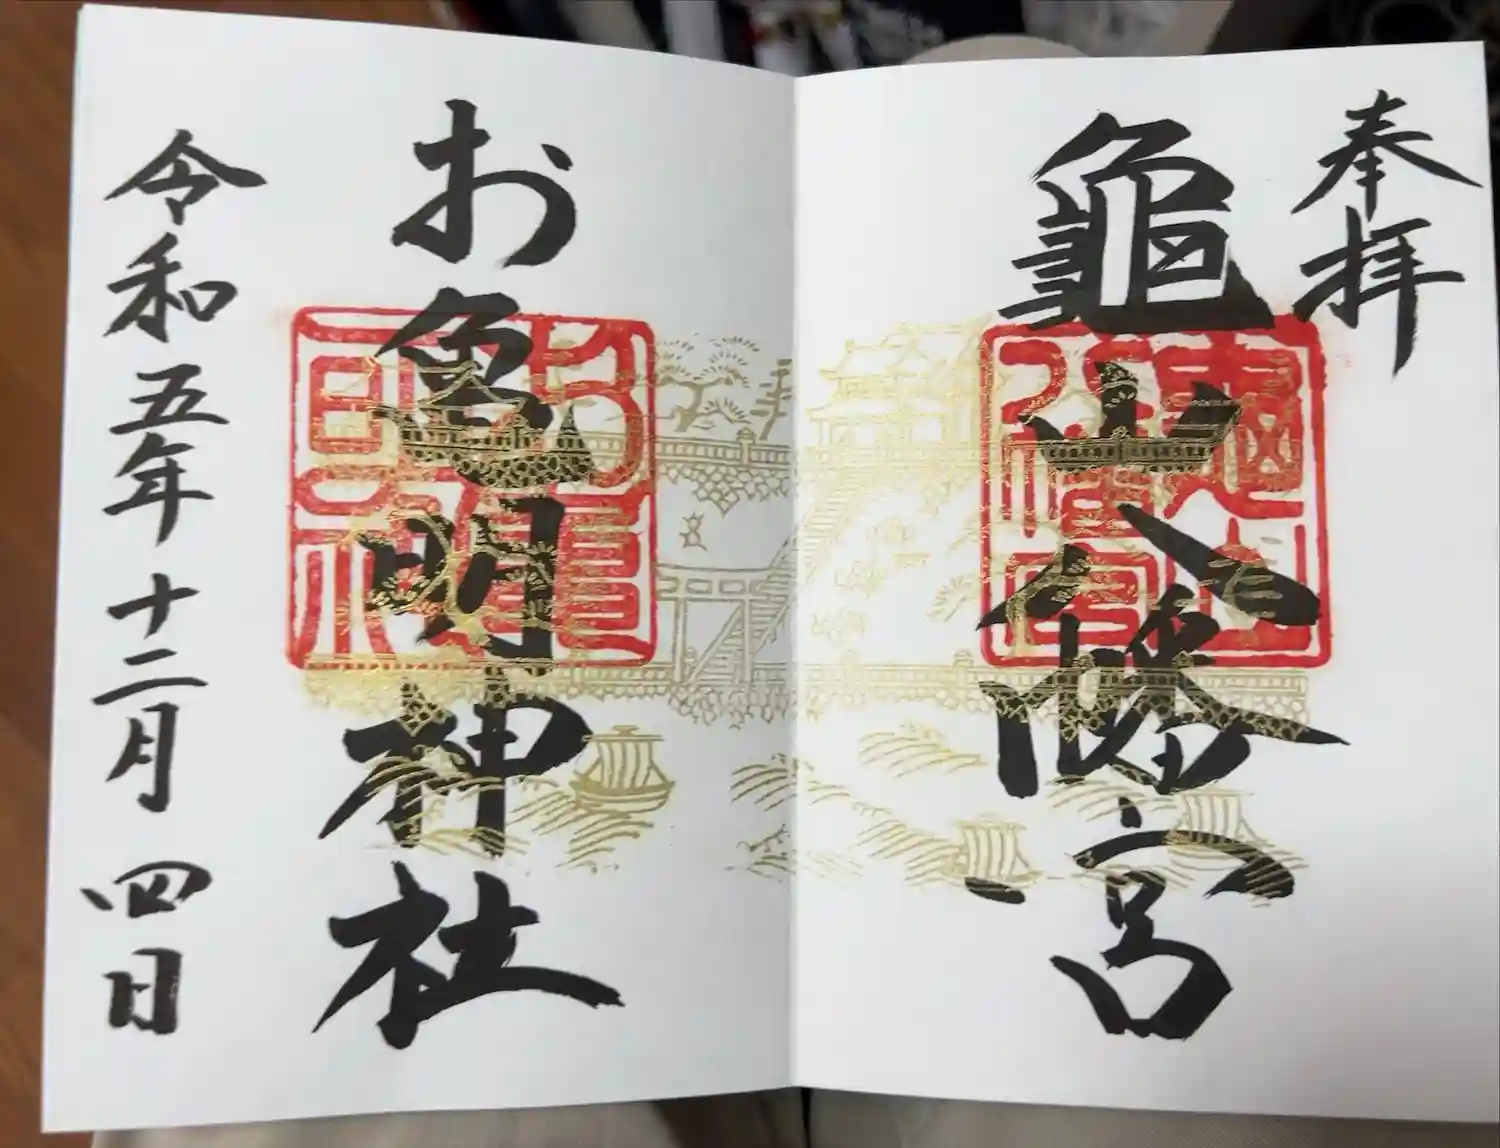 奉拝
龜山八幡宮
お亀明神社
令和五年十二月四日